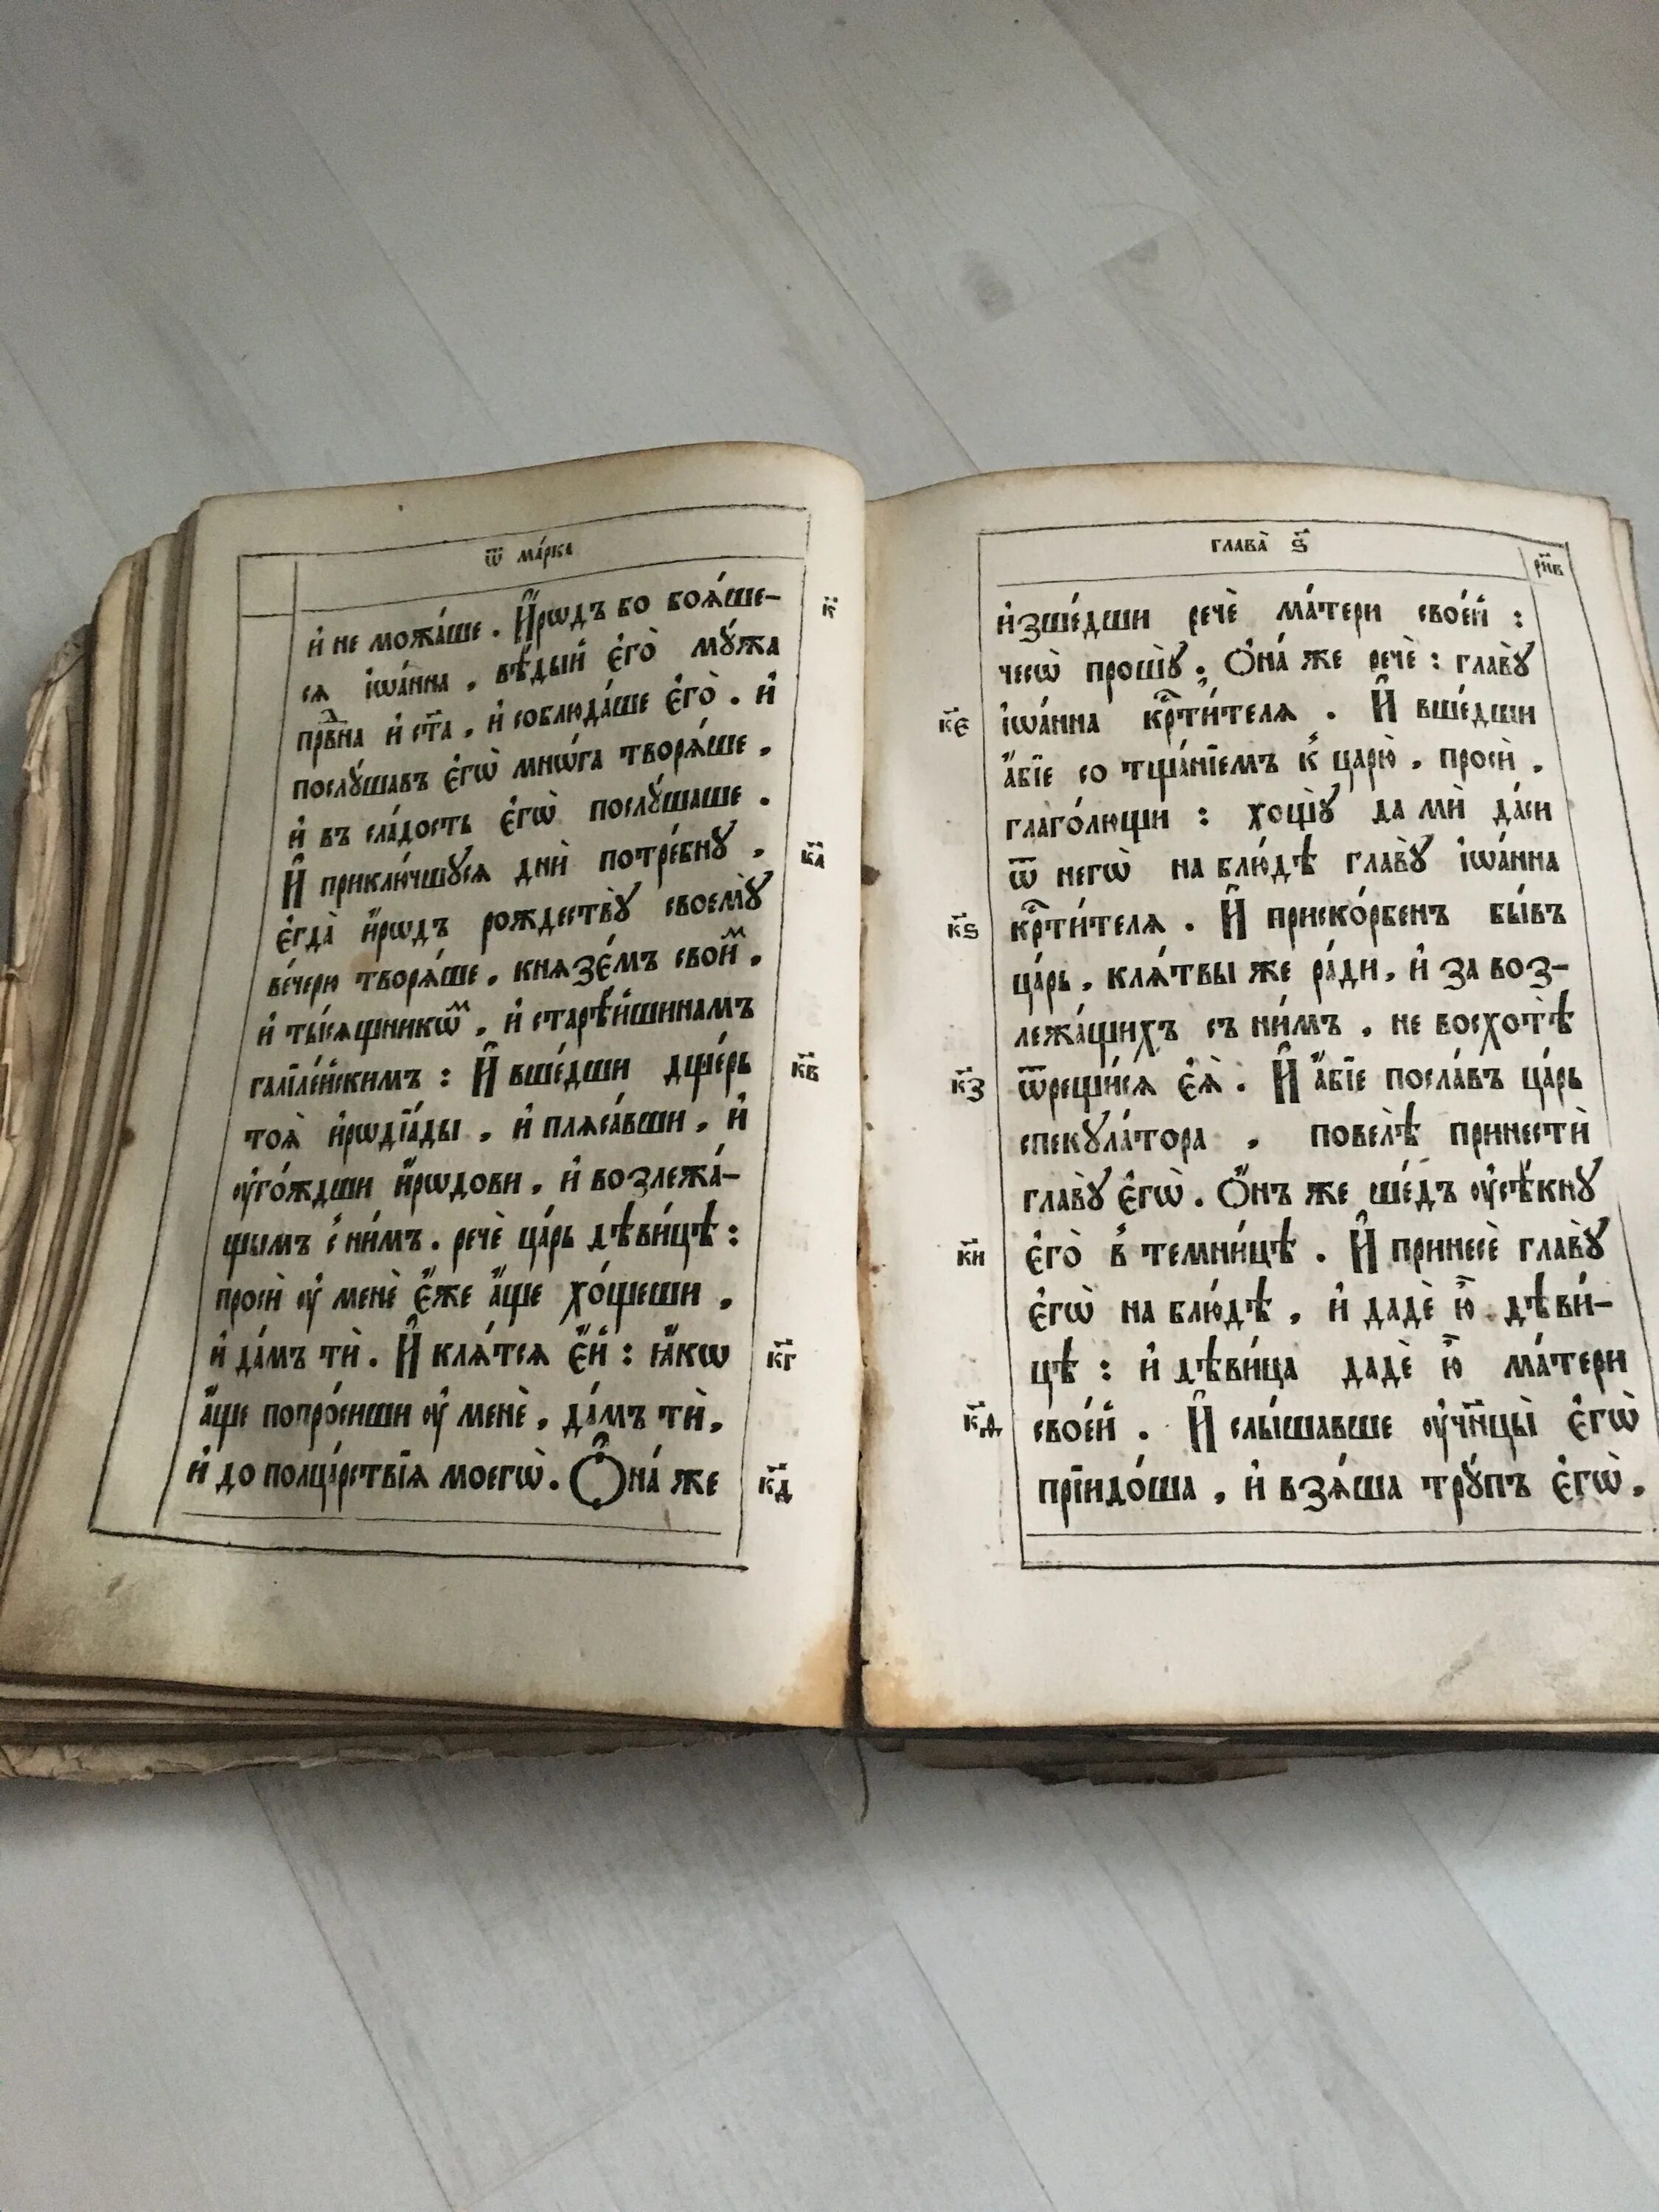 ѿ ма́рка
и҆ не можа́ше . И҆́рѡдъ бо боѧ́ше– к҃
сѧ і҆ѡа́нна , вѣ́дый є҆го̀ мꙋ́жа
пра́вⷣна и҆ ст҃а , и҆ соблюда́ше є҆го̀ . и҆
послꙋ́шавъ є҆гѡ̀ мнѡ́га творѧ́ше ,
и҆ въ сла́дость є҆гѡ̀ послꙋ́шаше .
И҆ приклю́чшꙋсѧ дни̑ потре́бнꙋ , к҃а
є҆гда̀ и҆́рѡдъ рождествꙋ̀ своемꙋ̀
ве́черю творѧ́ше , кнѧзе́мъ свои̑ⷨ ,
и҆ ты́сѧщникѡⷨ , и҆ старѣ́йшинамъ
галїле́йскимъ : И҆ вше́дши дще́рь к҃в
тоѧ̀ и҆рѡдїа́ды , и҆ плѧса́вши , и҆
ᲂу҆го́ждши и҆́рѡдови , и҆ возлежа́–
щымъ с̾ ни́мъ . речѐ ца́рь дѣви́цѣ :
проси̑ ᲂу҆ менѐ є҆́же а҆́ще хо́щеши ,
и҆ да́мъ ти̑ . И҆ клѧ́тсѧ є҆́й : ꙗ҆́кѡ к҃г
а҆́ще попро́сиши ᲂу҆ менѐ , да́мъ ти̑ ,
и҆ до полца́рствїѧ моегѡ̀ . Ѻ҆на́ же к҃д
глава̀ ѕ҃ рн҃в
и҆зше́дши речѐ ма́тери свое́й :
чесѡ̀ прошꙋ̀ ; Ѻ҆на́ же речѐ : главꙋ̀
к҃є і҆ѡа́нна крⷭ҇ти́телѧ . И҆ вше́дши
а҆́бїе со тща́нїемъ к̾ царю̀ , проси̑ ,
глаго́лющи : хощꙋ̀ да ми̑ да́си
ѿ негѡ̀ на блю́дѣ главꙋ̀ і҆ѡа́нна
к҃ѕ крⷭ҇ти́телѧ . И҆ приско́рбенъ бы́въ
ца́рь , клѧ́твы же ра́ди , и҆ за воз–
лежа́щихъ съ ни́мъ , не восхотѣ̀
к҃з ѿрещи́сѧ є҆ѧ̀ . И҆ а҆́бїе посла́въ ца́рь
спекꙋла́тора , повелѣ̀ принести̑
главꙋ̀ є҆гѡ̀ . Ѻ҆́нъ же ше́дъ ᲂу҆сѣ́кнꙋ
к҃и є҆го̀ в̾ темни́цѣ . И҆ принесѐ главꙋ̀
є҆гѡ̀ на блю́дѣ , и҆ дадѐ ю҆̀ дѣви́–
цѣ : и҆ дѣви́ца дадѐ ю҆̀ ма́тери
к҃ѳ свое́й . И҆ слы́шавше ᲂу҆чн҃цы̀ є҆гѡ̀
прїидо́ша , и҆ взѧ́ша трꙋ́пъ є҆гѡ̀ ,